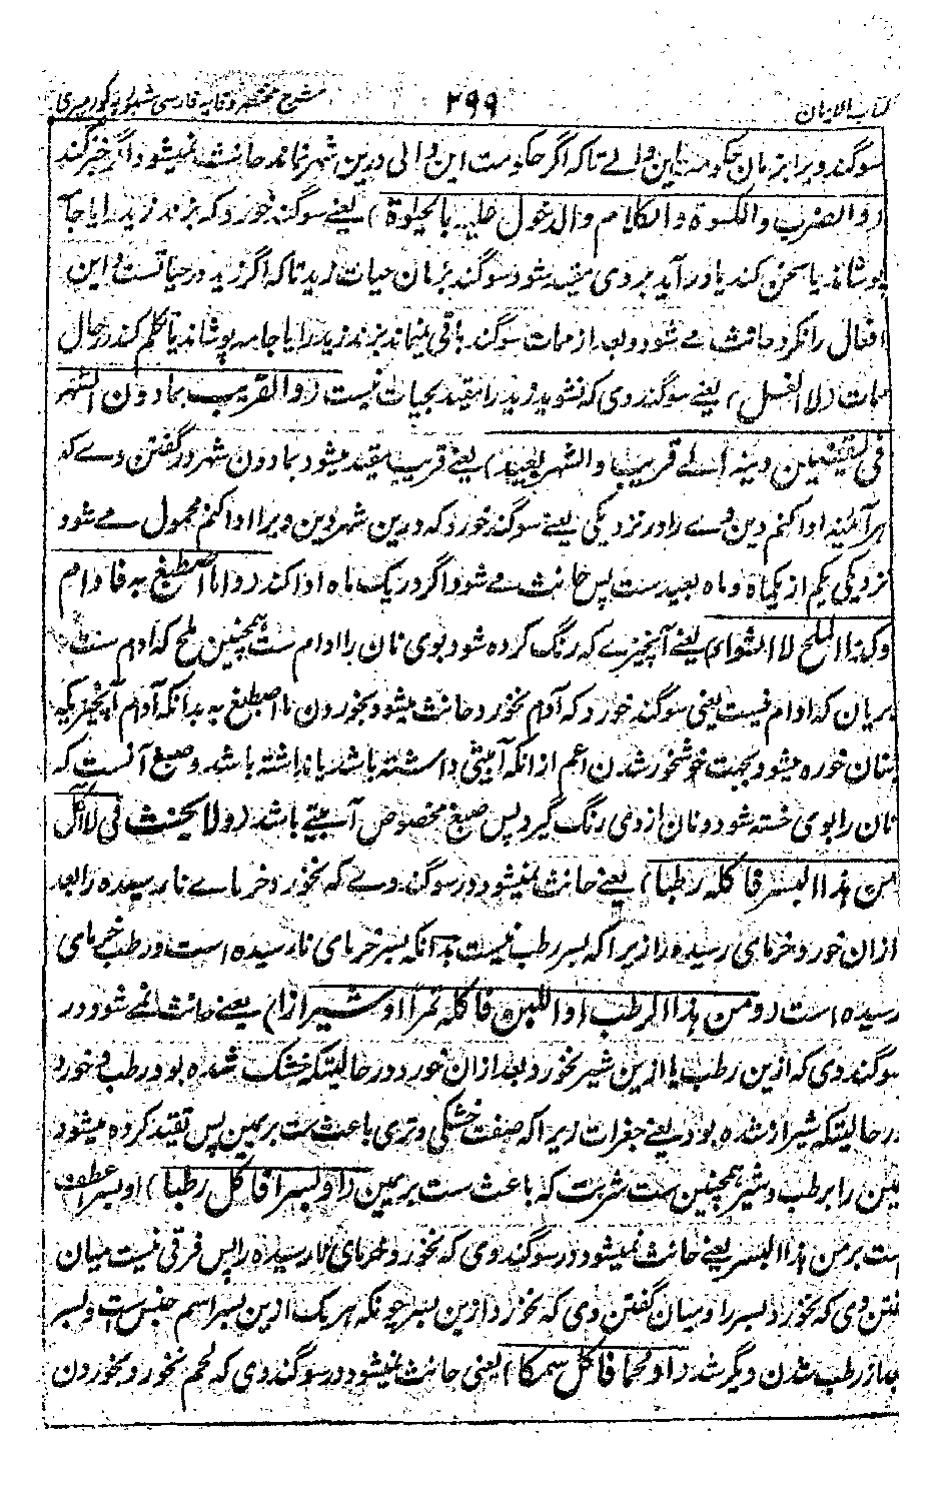 کتاب الایمان ۲۹۹ شرح مختصر وقایه فارسی
سوگند ویرا بزمان حکومت این والے تاکه اگر حکومت این والی درین شهر نماند حانث نمیشود اگر خبر کند
(والضرب والکسوة والکلام والدخول علیه بالحیوة) یعنے سوگند خورد که بزند زید را یا جامه
پوشاند یا سخن کند یا درآید بر وی مقید شود سوگند بزمان حیات زید تاکه اگر زید در حیاتست و این
افعال را نکرد حانث مے شود و بعد از ممات سوگند باقی نماند بزند زید را یا جامه پوشاند یا تکلم کند در حال
ممات (لا الغسل) یعنے سوگند وی که نشوید زید را مقید بحیات نیست (والقریب بما دون الشهر
فی لیقضین دینه الے قریب والشهر بعید) یعنے قریب مقید میشود بما دون شهر در گفتن وے که
هر آئینه ادا کنم دین وے را در نزدیکی یعنے سوگند خورد که درین شهر دین ویرا ادا کنم محمول مے شود
نزدیکی بکم از یکماه و ماه بعید ست پس حانث مے شود اگر در یک ماه ادا کند (و اما اصطبغ به فادام
وکذا الملح لا الشواء) یعنے آنچیزے که رنگ کرده شود بوی نان را ادام ست همچنین ملح که ادام ست
بریان که ادام نیست یعنی سوگند خورد که ادام نخورد حانث میشود بخوردن ما اصطبغ به بدانکه ادام آنچیزیکه
بنان خورده میشود بجهت خوشخور شدن اعم از انکه آبیتی داشته باشد یا نداشته باشد و صبغ آنست که
نان را بوی خسته شود و نان از وی رنگ گیرد پس صبغ مخصوص آبیتے باشد (ولا یحنث فی لا آکل
من هذا البسر فاکله رطبا) یعنے حانث نمیشود در سوگند وے که نخورد خرماے نارسیده را بعد
ازان خورد خرمای رسیده را زیرا که بسر رطب نیست بدانکه بسر خرمای نارسیده است و رطب خرمای
رسیده است (ومن هذا الرطب او اللبن فاکله تمرا او شیرازا) یعنے حانث نمے شود در
سوگند وی که ازین رطب یا ازین شیر نخورد بعد ازان خورد در حالیتکه خشک شده بود رطب و خورد
در حالیتکه شیراز شده بود یعنے جغرات زیرا که صفت خشکی و تری باعث ست بر یمین پس تقید کرده میشود
یمین را برطب و شیر همچنین ست شربت که باعث ست بر یمین (او بسرا فاکل رطبا) او بسر عطف
ست بر من هذا البسر یعنے حانث نمیشود در سوگند وی که نخورد خرمای نارسیده را پس فرقی نیست میان
گفتن وی که نخورد بسر را و میان گفتن وی که نخورد ازین بسر چونکه هر یک ازین بسر اسم جنس است و بسر
بعد از رطب شدن دیگر شد (او لحما فاکل سمکا) یعنی حانث نمیشود در سوگند وی که لحم نخورد و بخوردن